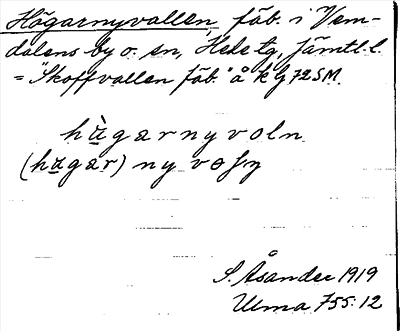 Högarnyvallen, fäb. i Vem-
dalens by o. sn, Hede tg, Jämtl. l.
= "Skoffvallen fäb." å k G 72 SM.
hàgarnyvoln
(hagar) ny voḷn
S. Åsander 1919
Ulma 755:12